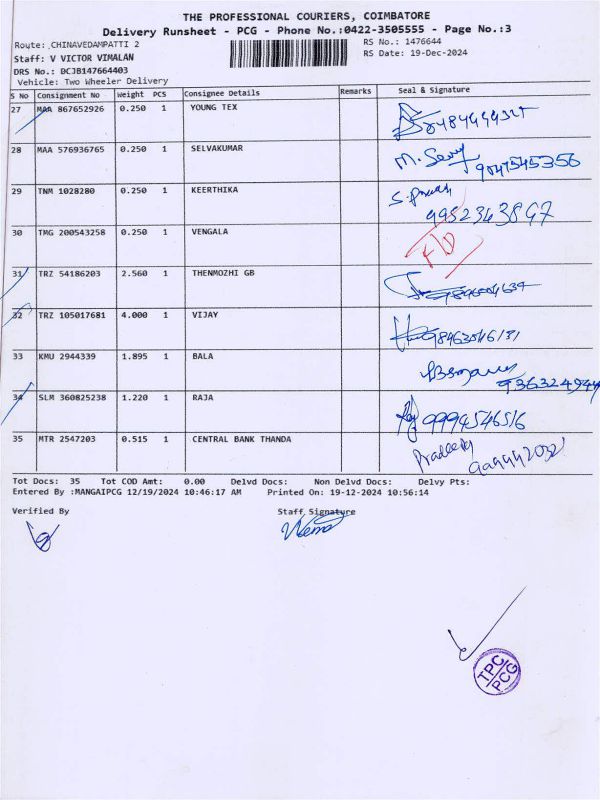 THE PROFESSIONAL COURIERS, COIMBATORE
Delivery Runsheet - PCG - Phone No.:0422-3505555 - Page No.:3
Route: ,CHINAVEDAMPATTI 2 RS No.: 1476644
Staff: V VICTOR VIMALAN RS Date: 19-Dec-2024
DRS No.: DCJB147664403
Vehicle: Two Wheeler Delivery
S No Consignment No Weight PCS Consignee Details Remarks Seal & Signature
27 MAA 867652926 0.250 1 YOUNG TEX
28 MAA 576936765 0.250 1 SELVAKUMAR 9047545356
29 TNM 1028280 0.250 1 KEERTHIKA
30 TMG 200543258 0.250 1 VENGALA
31 TRZ 54186203 2.560 1 THENMOZHI GB
32 TRZ 105017681 4.000 1 VIJAY
33 KMU 2944339 1.895 1 BALA
34 SLM 360825238 1.220 1 RAJA 9994546516
35 MTR 2547203 0.515 1 CENTRAL BANK THANDA Pradeep
Tot Docs: 35 Tot COD Amt: 0.00 Delvd Docs: Non Delvd Docs: Delvy Pts:
Entered By :MANGAIPCG 12/19/2024 10:46:17 AM Printed On: 19-12-2024 10:56:14
Verified By Staff Signature
TPC
PCG